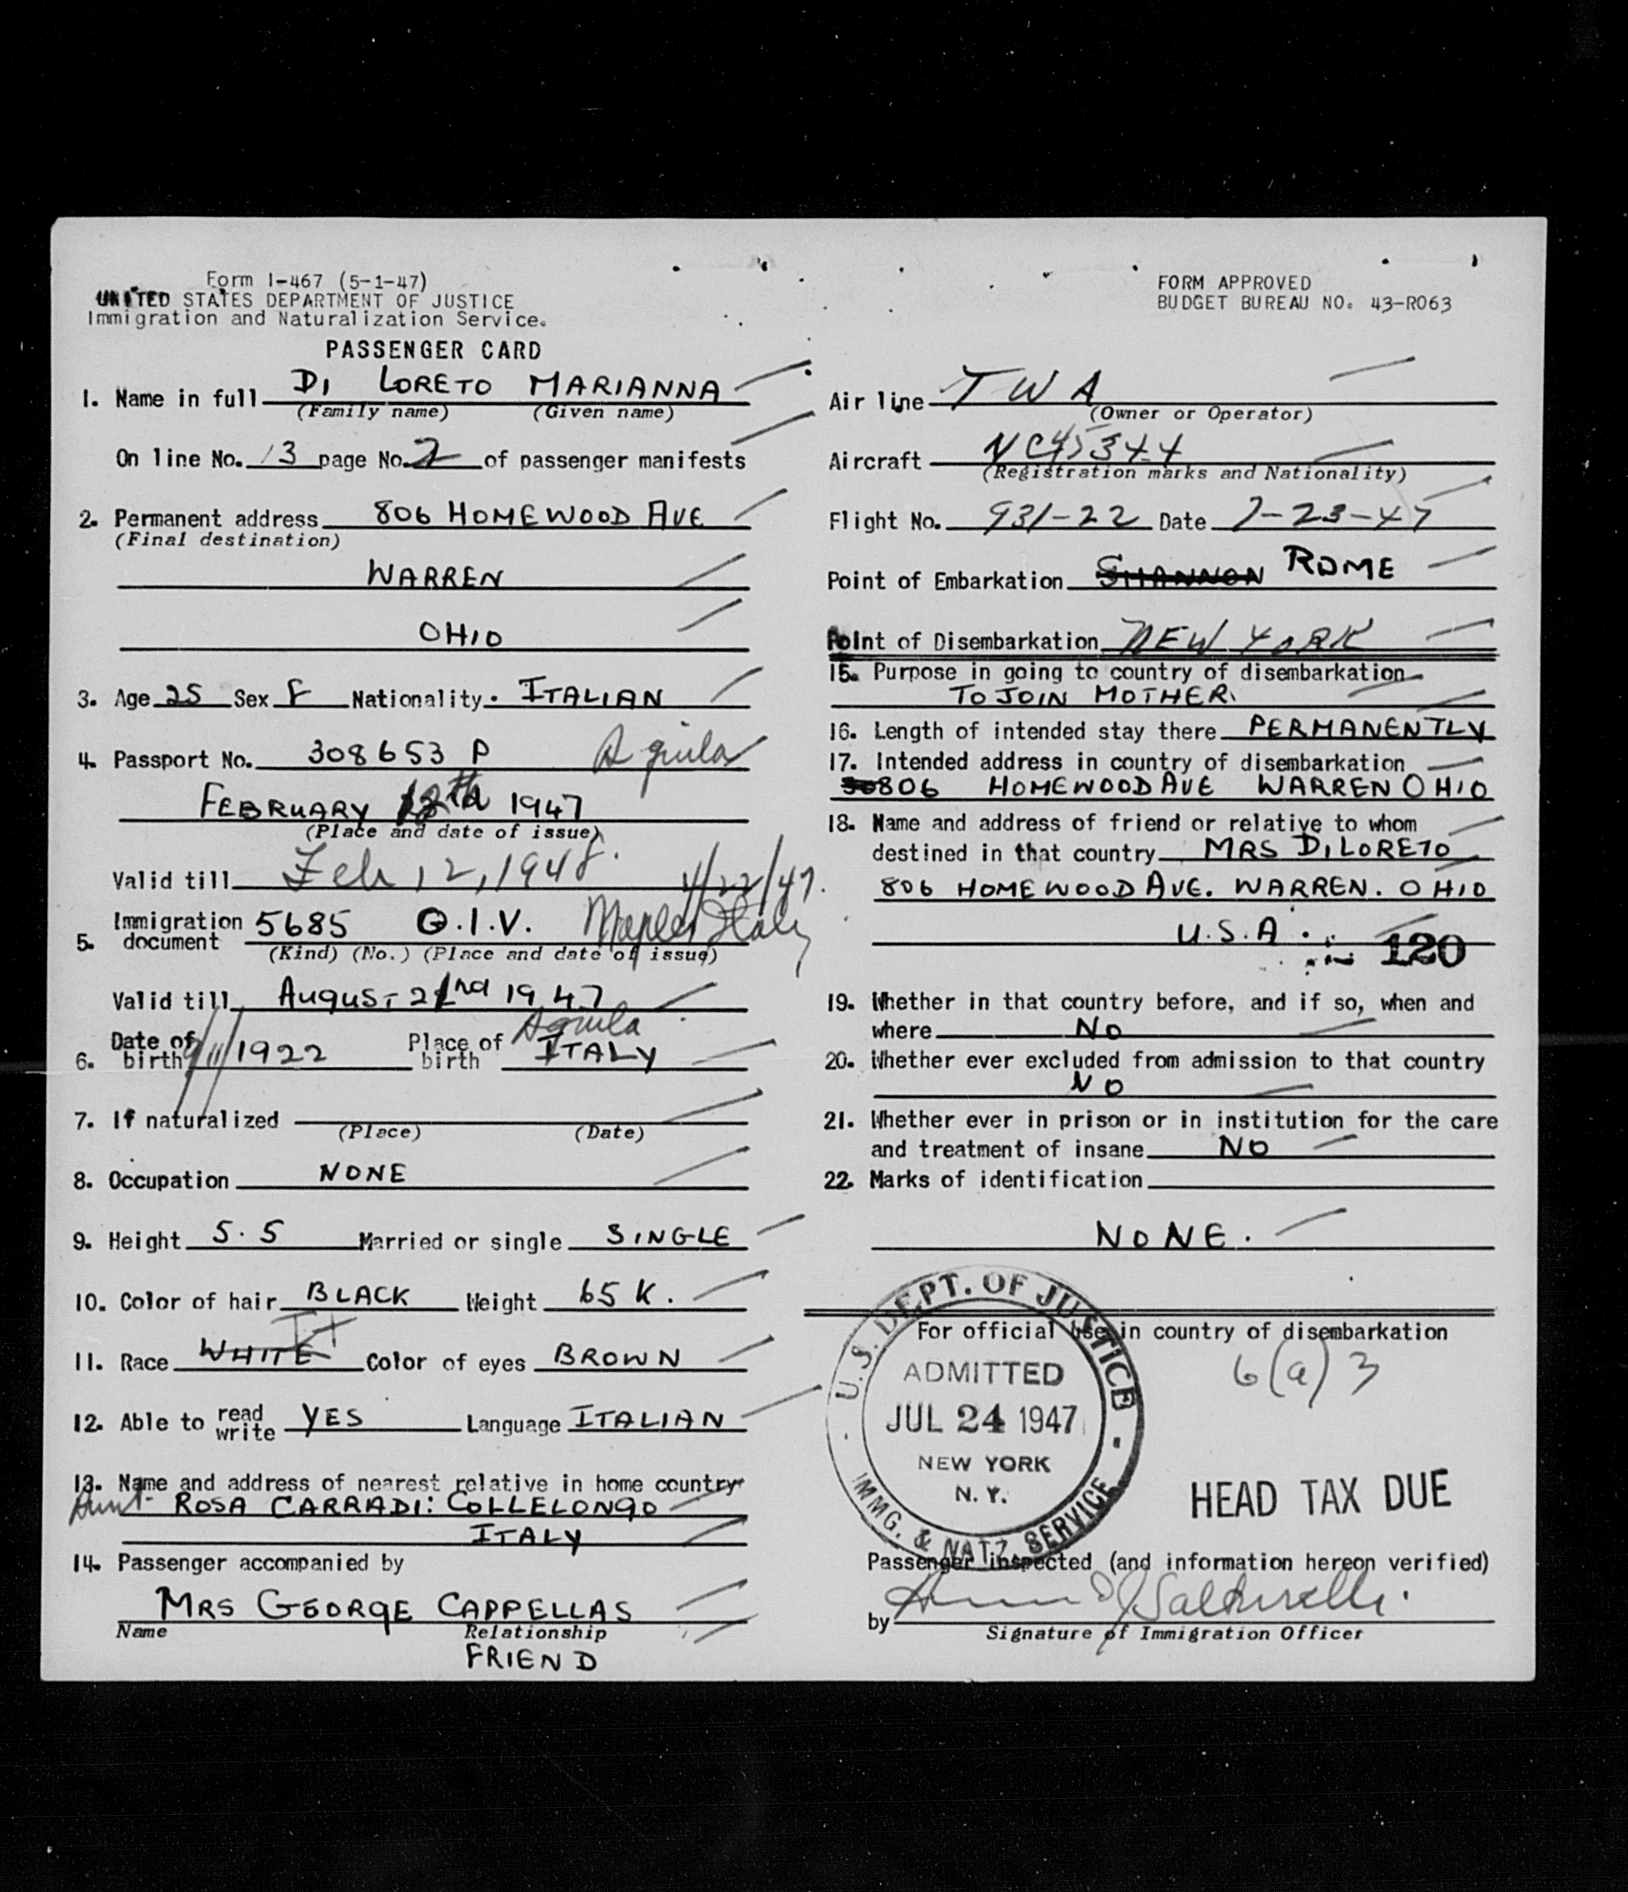 Form I-467 (5-1-47)
UNITED STATES DEPARTMENT OF JUSTICE
Immigration and Naturalization Service.
PASSENGER CARD
1. Name in full DI LORETO MARIANNA
(Family name) (Given name)
On line No. 13 page No. 2 of passenger manifests
2. Permanent address 806 HOMEWOOD AVE
(Final destination)
WARREN
OHIO
3. Age 25 Sex F Nationality. ITALIAN
4. Passport No. 308653 P Aquila
FEBRUARY 12th 1947
(Place and date of issue)
Valid till Feb 12, 1948.
4/22/47.
5. Immigration document 5685 Q.I.V. Naples Italy
(Kind) (No.) (Place and date of issue)
Valid till AUGUST 21nd 1947
Aquila
6. Date of birth 9/11/1922 Place of birth ITALY
7. If naturalized
(Place) (Date)
8. Occupation NONE
9. Height 5.5 Married or single SINGLE
10. Color of hair BLACK Weight 65 K.
It
11. Race WHITE Color of eyes BROWN
12. Able to read write YES Language ITALIAN
13. Name and address of nearest relative in home country
Aunt- ROSA CARRADI: COLLELONGO
ITALY
14. Passenger accompanied by
MRS GEORGE CAPPELLAS
Name Relationship
FRIEND
FORM APPROVED
BUDGET BUREAU NO. 43-R063
Air line TWA
(Owner or Operator)
Aircraft NC45344
(Registration marks and Nationality)
Flight No. 931-22 Date 7-23-47
Point of Embarkation SHANNON ROME
Point of Disembarkation NEW YORK
15. Purpose in going to country of disembarkation
TO JOIN MOTHER
16. Length of intended stay there PERMANENTLY
17. Intended address in country of disembarkation
806 HOMEWOOD AVE WARREN OHIO
18. Name and address of friend or relative to whom
destined in that country MRS DI LORETO
806 HOMEWOOD AVE. WARREN. OHIO
U.S.A.
120
19. Whether in that country before, and if so, when and
where NO
20. Whether ever excluded from admission to that country
NO
21. Whether ever in prison or in institution for the care
and treatment of insane NO
22. Marks of identification
NONE.
For official use in country of disembarkation
6(a)3
U.S. DEPT. OF JUSTICE
ADMITTED
JUL 24 1947
NEW YORK
N.Y.
IMMG. & NATZ. SERVICE
HEAD TAX DUE
Passenger inspected (and information hereon verified)
by
Signature of Immigration Officer